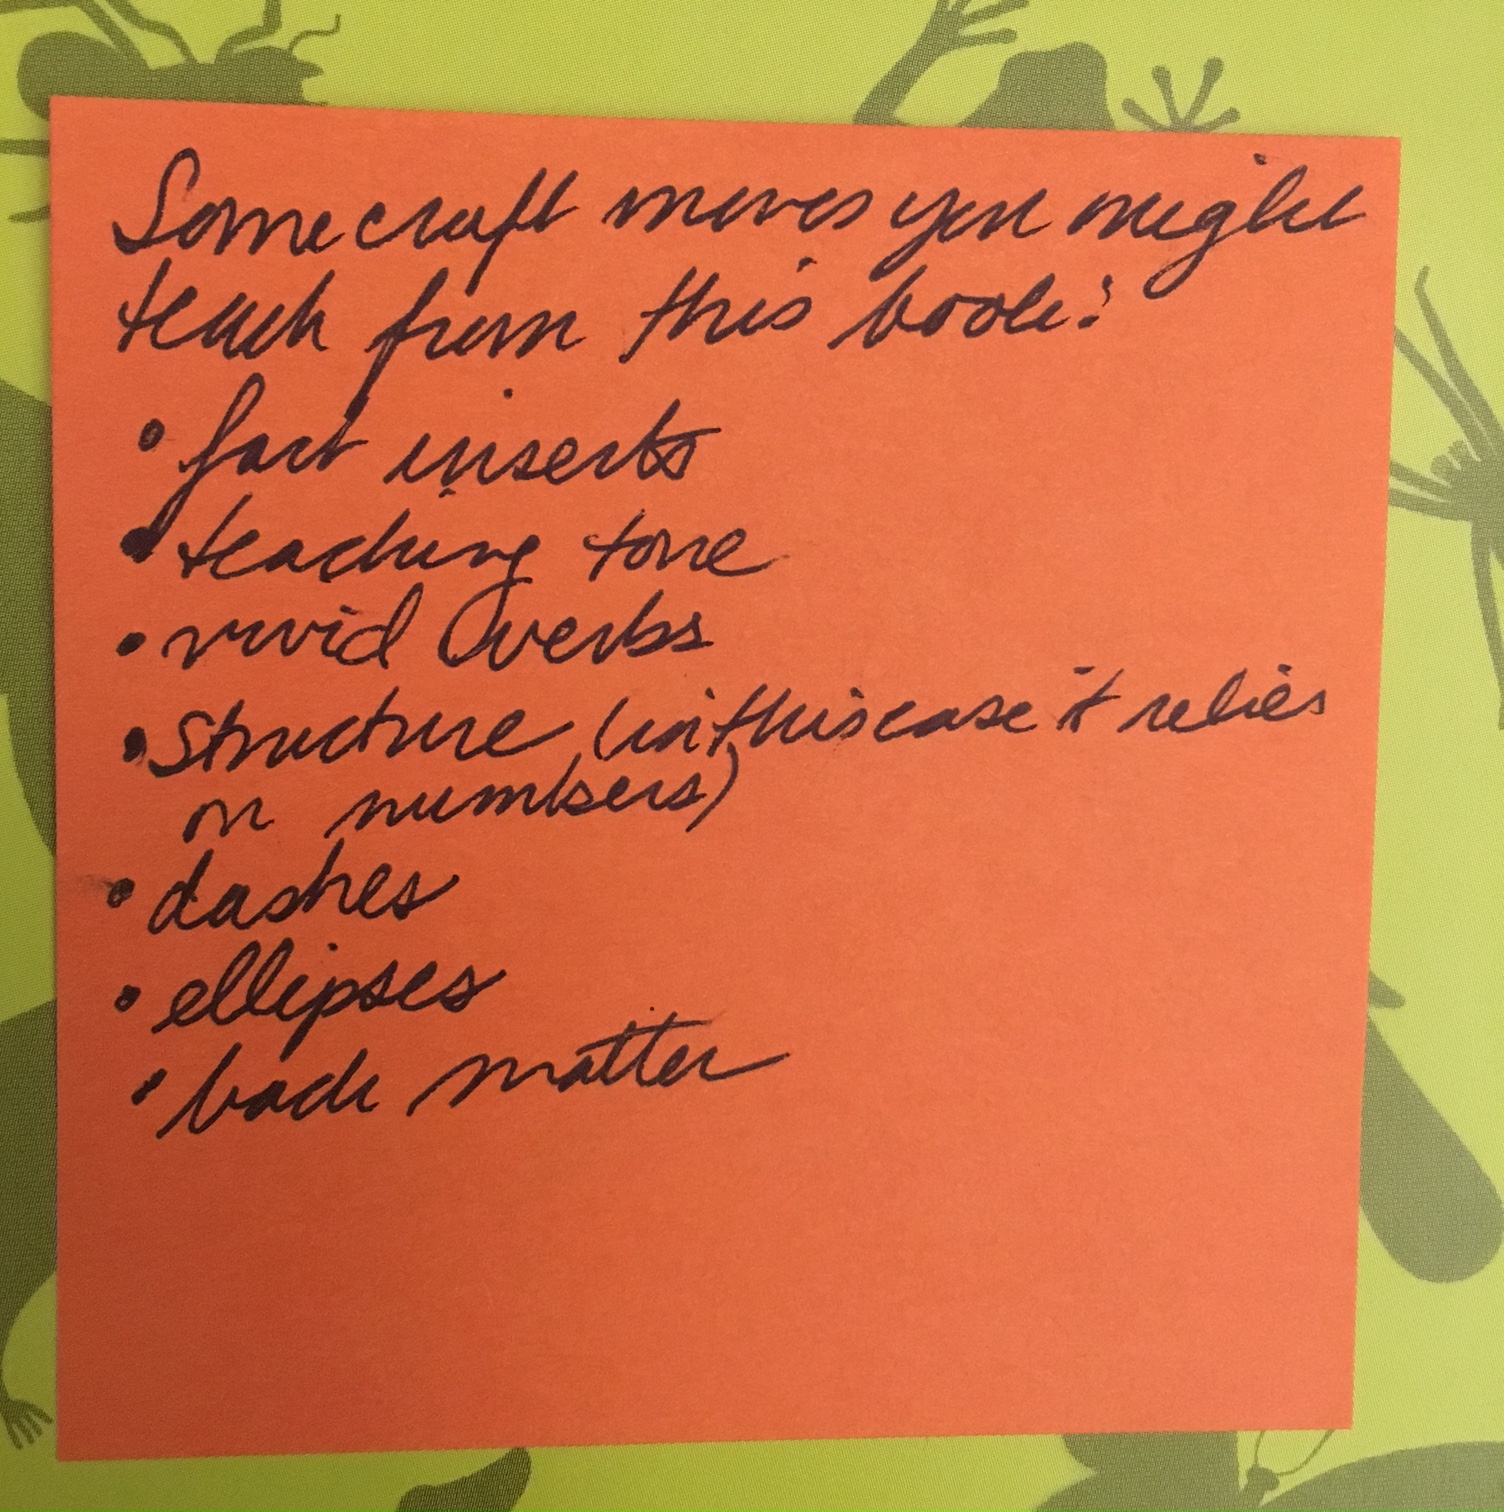 Some craft moves you might
teach from this book:
• fact inserts
• teaching tone
• vivid verbs
• Structure (in this case it relies
on numbers)
• dashes
• ellipses
• back matter